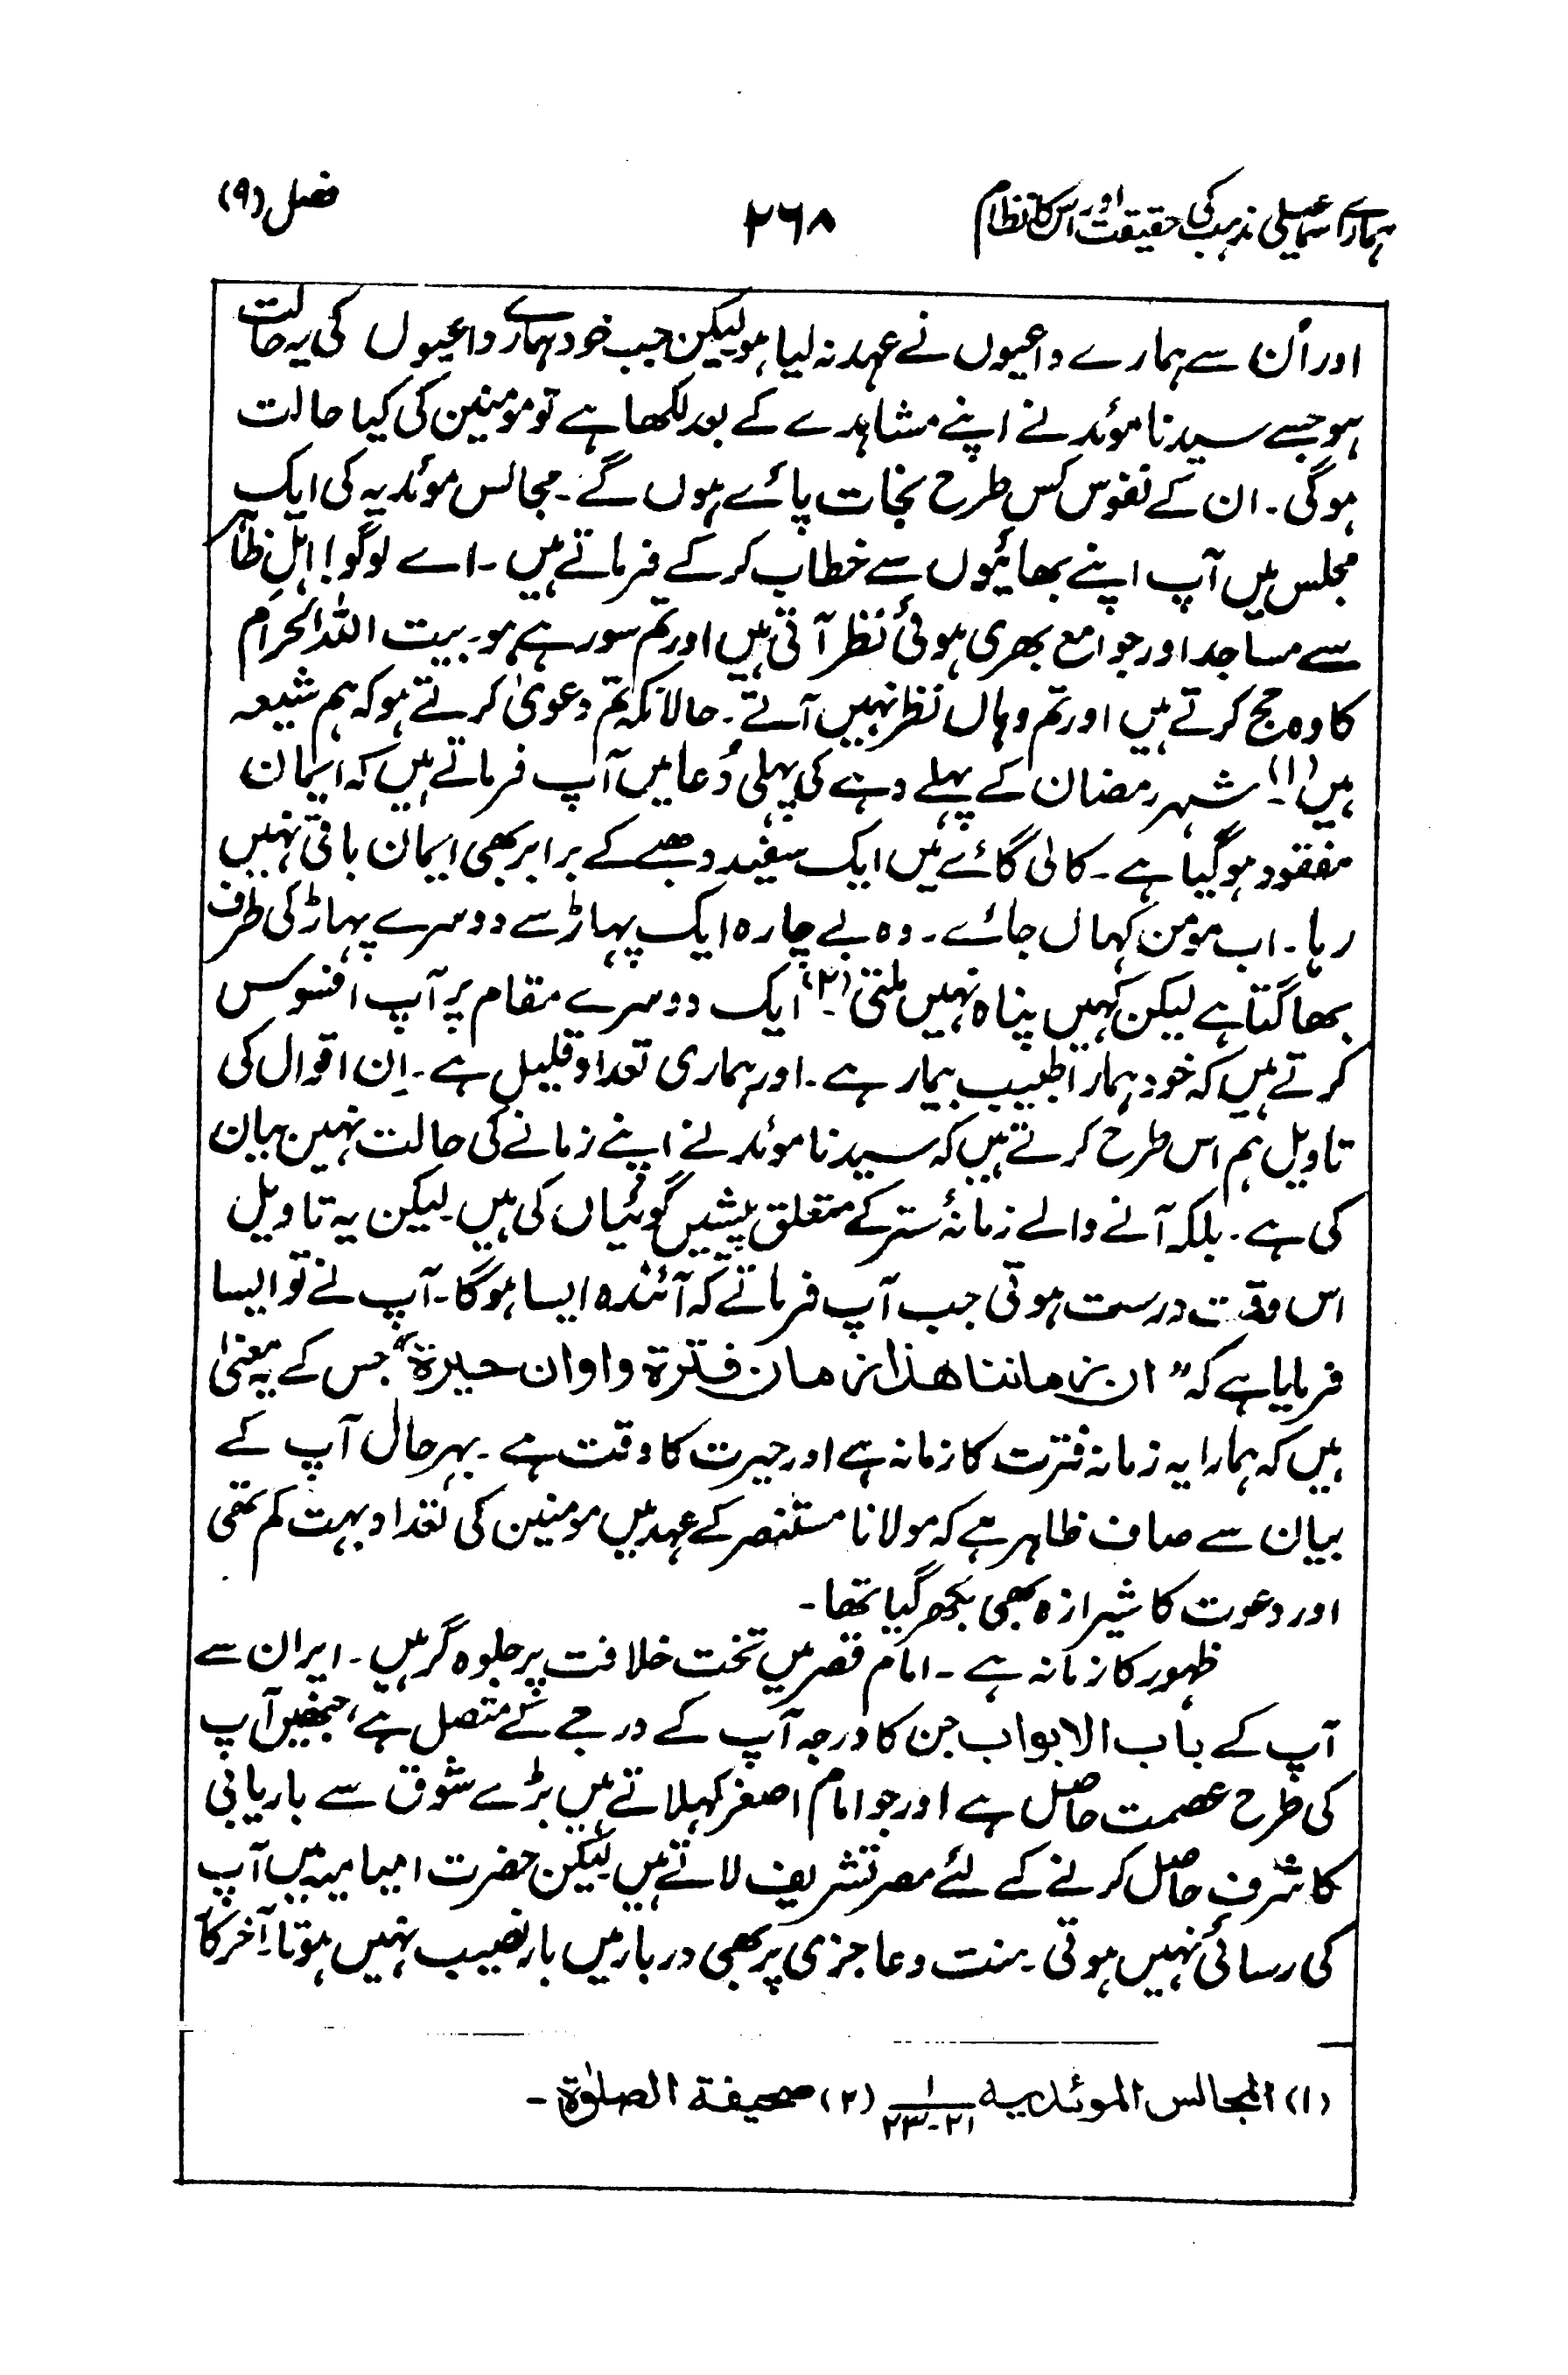 ہمارے اسماعیلی مذہب کی حقیقت اور اس کا نظام ۲۶۸ فصل (۹)
اور اُن سے ہمارے داعیوں نے عہد نہ لیا ہو لیکن جب خود ہمارے داعیوں کی یہ حالت
ہو جسے سیدنا موئد نے اپنے مشاہدے کے بعد لکھا ہے تو مومنین کی کیا حالت
ہوگی۔ ان کے نفوس کس طرح نجات پائے ہوں گے۔ مجالس موئدیہ کی ایک
مجلس میں آپ اپنے بھائیوں سے خطاب کر کے فرماتے ہیں۔ اے لوگو! اہلِ ظاہر
سے مساجد اور جوامع بھری ہوئی نظر آتی ہیں اور تم سو رہے ہو۔ بیت اللہ الحرام
کا وہ حج کرتے ہیں اور تم وہاں نظر نہیں آتے۔ حالانکہ تم دعویٰ کرتے ہو کہ ہم شیعہ
ہیں (۱)۔ شہر رمضان کے پہلے دہے کی پہلی دُعا میں آپ فرماتے ہیں کہ ایمان
مفقود ہوگیا ہے۔ کالی گائے میں ایک سفید دھبے کے برابر بھی ایمان باقی نہیں
رہا۔ اب مومن کہاں جائے۔ وہ بے چارہ ایک پہاڑ سے دوسرے پہاڑ کی طرف
بھاگتا ہے لیکن کہیں پناہ نہیں ملتی (۲)۔ ایک دوسرے مقام پر آپ افسوس
کرتے ہیں کہ خود ہمارا طبیب بیمار ہے۔ اور ہماری تعداد قلیل ہے۔ اِن اقوال کی
تاویل ہم اس طرح کرتے ہیں کہ سیدنا موئد نے اپنے زمانے کی حالت نہیں بیان
کی ہے۔ بلکہ آنے والے زمانۂ ستر کے متعلق پیشیں گوئیاں کی ہیں۔ لیکن یہ تاویل
اس وقت درست ہوتی جب آپ فرماتے کہ آئندہ ایسا ہوگا۔ آپ نے تو ایسا
فرمایا ہے کہ "ان زماننا هذا زمان فترة واوان حيرة" جس کے یہ معنیٰ
ہیں کہ ہمارا یہ زمانہ فترت کا زمانہ ہے اور حیرت کا وقت ہے۔ بہرحال آپ کے
بیان سے صاف ظاہر ہے کہ مولانا مستنصر کے عہد میں مومنین کی تعداد بہت کم تھی
اور دعوت کا شیرازہ بھی بکھر گیا تھا۔
ظہور کا زمانہ ہے۔ امام قصر میں تخت خلافت پر جلوہ گر ہیں۔ ایران سے
آپ کے باب الابواب جن کا درجہ آپ کے درجے کے متصل ہے، جنھیں آپ
کی طرح عصمت حاصل ہے اور جو امام اصغر کہلاتے ہیں بڑے شوق سے باریابی
کا شرف حاصل کرنے کے لئے مصر تشریف لاتے ہیں لیکن حضرت امامیہ میں آپ
کی رسائی نہیں ہوتی۔ منت و عاجزی پر بھی دربار میں بار نصیب نہیں ہوتا۔ آخر کار
(۱) المجالس الموئدیه ۱/۲۱-۲۳ (۲) صحیفة الصلوٰة۔